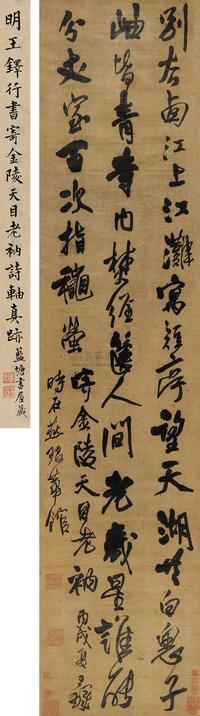 別南江上江灘寫望天湖白子
岫皆青寺內楞經篋人間老歲星誰能
分丈室百次指螢寄金陵天目老衲丙戌夏王鐸
時在燕館
明王鐸行書寄金陵天目老衲詩軸真跡 藍塘書屋藏